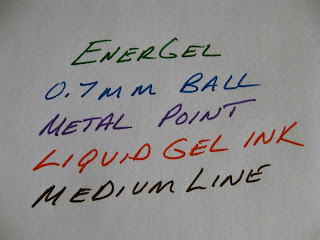 EnerGel
0.7mm Ball
Metal Point
Liquid Gel Ink
Medium Line